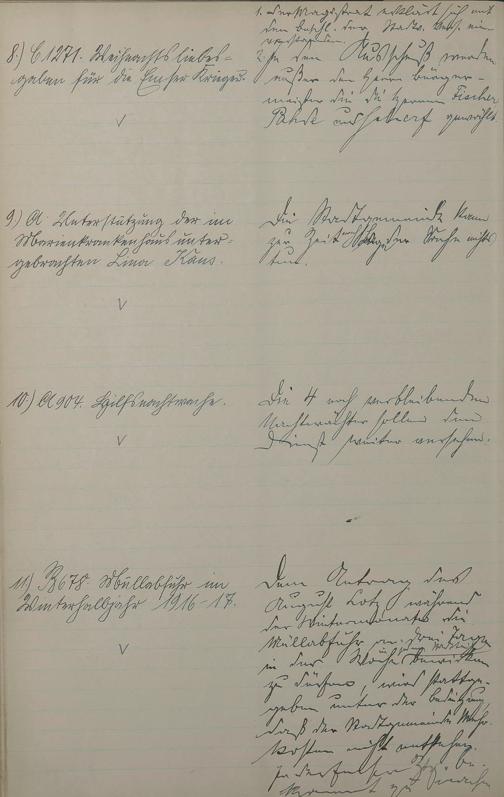 8.) C 1271. Weihnachtsliebes-
gaben für die Emser Krieger.
1. Der Magistrat erklärt sich mit
dem Beschl. der Stadtv. Vers. ein-
verstanden.
2. In den Ausschuß werden
außer dem Herrn Bürger-
meister die Herren Fischer
und gewählt
9.) A. Unterstützung der im
Marienkrankenhaus unter-
gebrachten Lina Kaus.
Die Stadtgemeinde kann
zur Zeit in der Sache nichts
tun.
10.) A 904. Hilfsnachtwache.
Die 4 noch verbleibenden
Nachtwächter sollen den
Dienst weiter versehen.
11) B 678. Müllabfuhr im
Winterhalbjahr 1916-17.
Dem Antrag des
August Lotz während
der Wintermonate die
Müllabfuhr an drei Tagen
in der Woche bewirken
zu dürfen, wird stattge-
geben unter der Bedingung,
daß der Stadtgemeinde Mehr-
kosten nicht entstehen.
be-
kannt zu machen